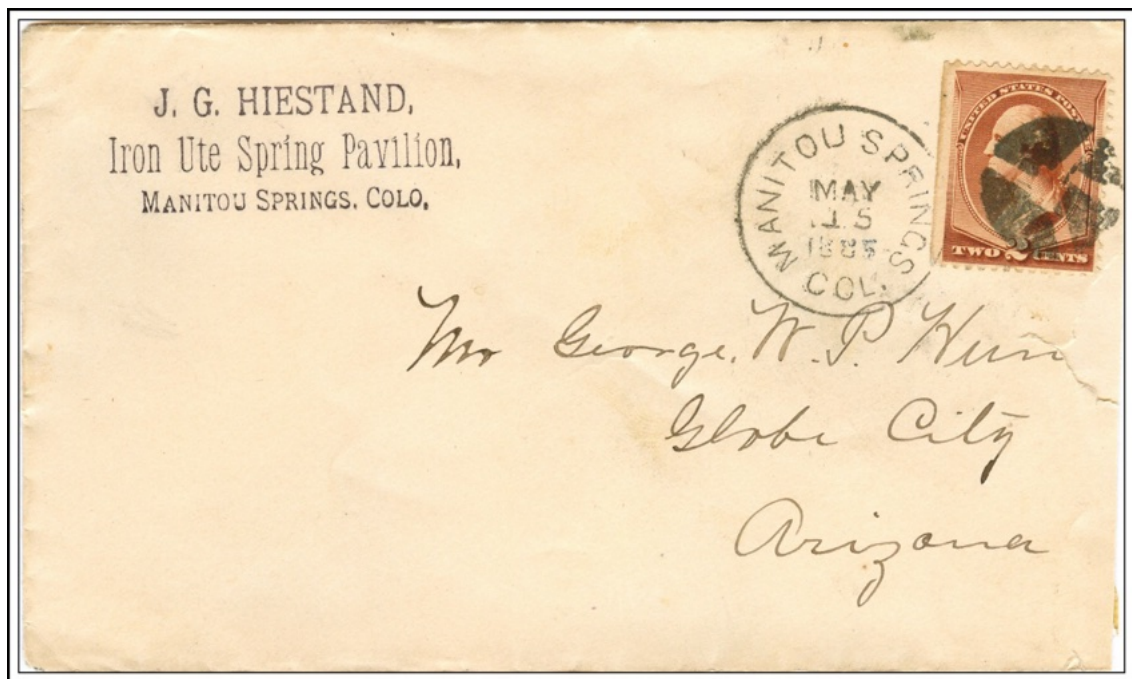 J. G. HIESTAND,
Iron Ute Spring Pavilion,
MANITOU SPRINGS. COLO,
MANITOU SPRINGS
MAY
15
1885
COL.
UNITED STATES POST
TWO 2 CENTS
Mr George. W. P. Hun
Globe City
Arizona